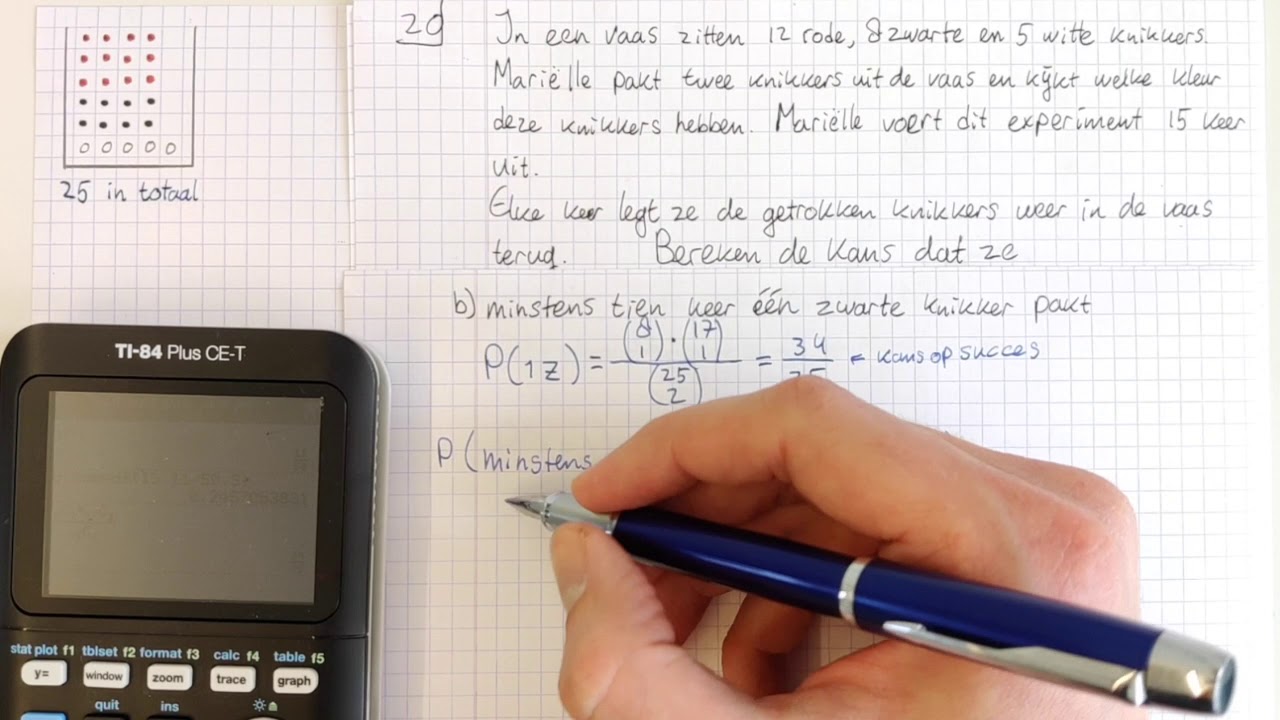 20
In een vaas zitten 12 rode, 8 zwarte en 5 witte knikkers.
Mariëlle pakt twee knikkers uit de vaas en kijkt welke kleur
deze knikkers hebben. Mariëlle voert dit experiment 15 keer
uit.
Elke keer legt ze de getrokken knikkers weer in de vaas
terug. Bereken de kans dat ze
25 in totaal
b) minstens tien keer één zwarte knikker pakt
P(1z) = (8 1) · (17 1) / (25 2) = 34 ← kans op succes
P (minstens
TI-84 Plus CE-T
stat plot f1 tblset f2 format f3 calc f4 table f5
y= window zoom trace graph
quit ins